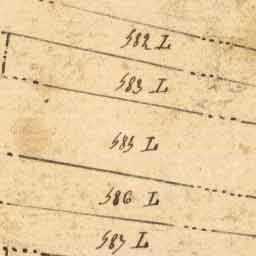 582 L
583 L
585 L
586 L
587 L